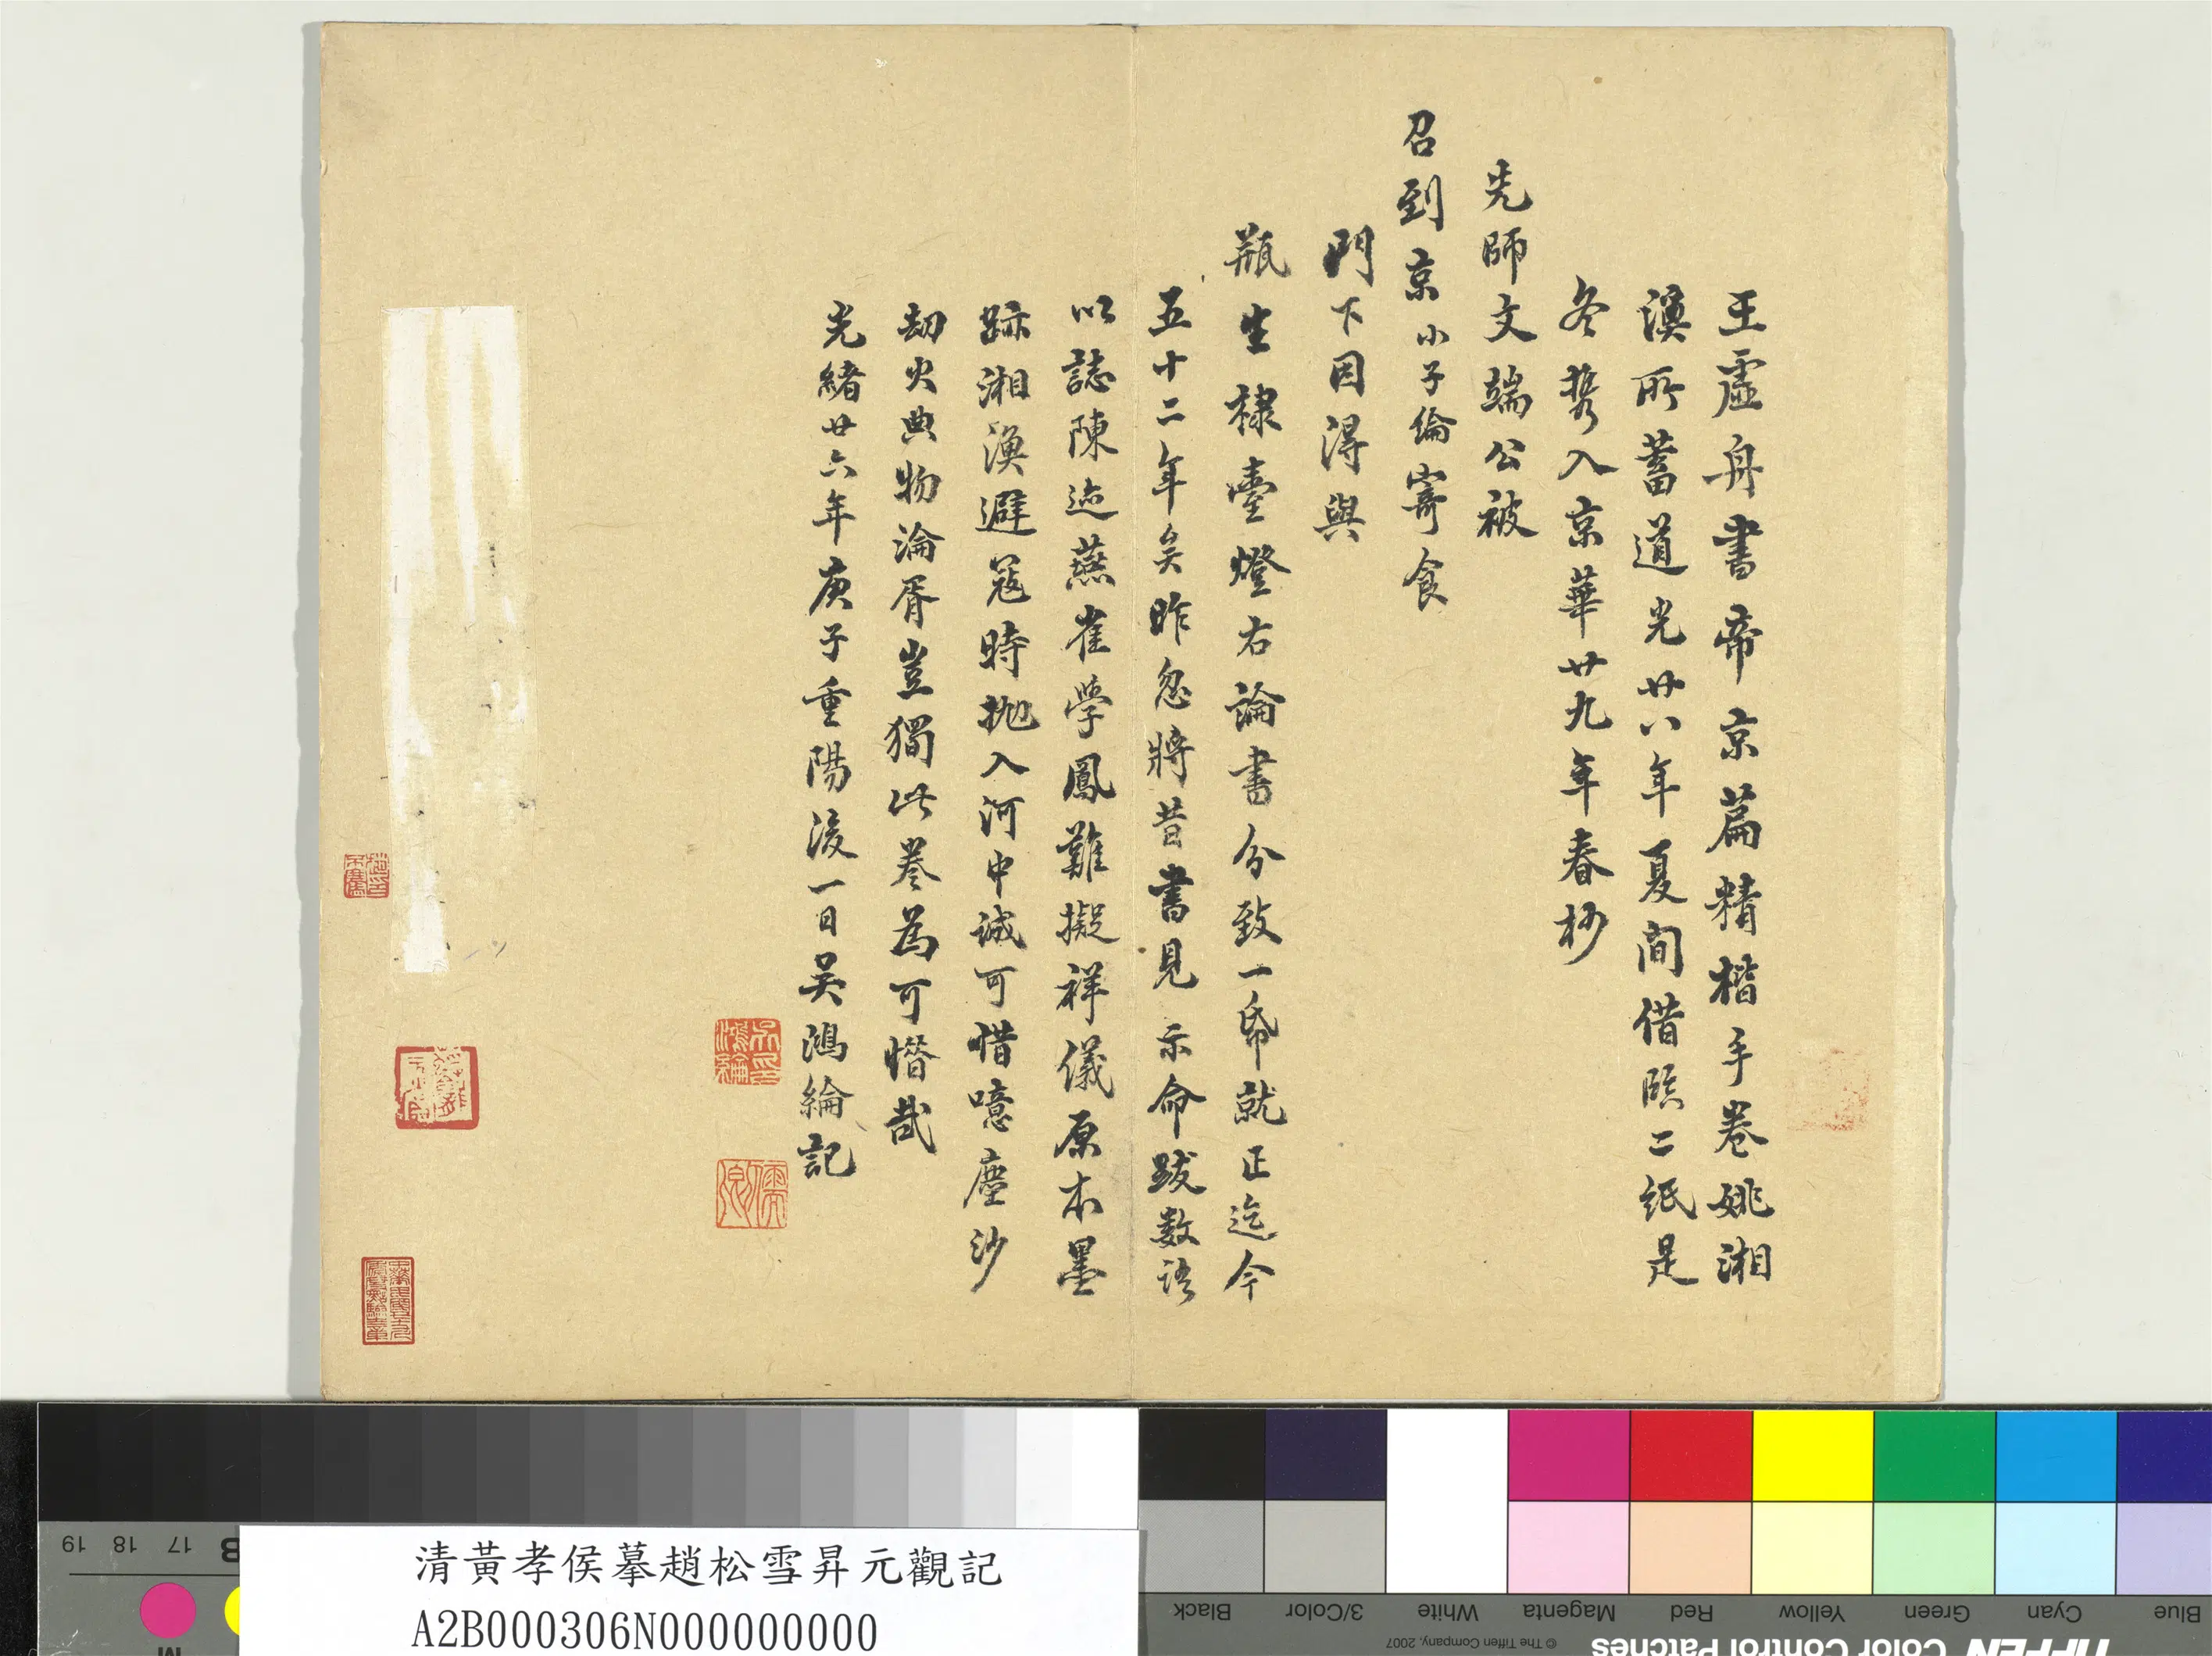 王虛舟書帝京篇精楷手卷姚湘
漁所蓄道光廿八年夏間借臨二紙是
冬携入京華廿九年春杪
先師文端公被
召到京小子綸寄食
門下因得與
瓶生棣臺燈右論書分致一帋就正迄今
五十二年矣昨忽將昔書見示命跋数語
以誌陳迹燕雀學鳳難擬祥儀原本墨
跡湘漁避寇時拋入河中誠可惜噫塵沙
劫火典物淪胥豈獨此卷為可惜哉
光緒廿六年庚子重陽後一日吳鴻綸記
吳印鴻綸
儒卿
清黃孝侯摹趙松雪昇元觀記
A2B000306N000000000
19 18 17 B
M
Black
3/Color
White
Magenta
Red
Yellow
Green
Cyan
Blue
© The Tiffen Company, 2007
TIFFEN Color Control Patches